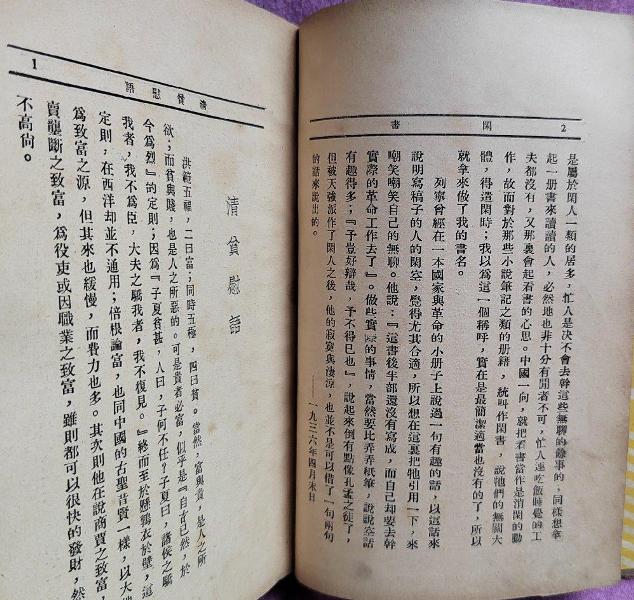 2 閑書
是屬於閑人一類的居多，忙人是決不會去幹這些無聊的餘事的，同樣想拿
起一册書來讀讀的人，必然地也非十分有閒者不可，忙人連吃飯睡覺的工
夫都沒有，又那裏會起看書的心思。中國一向，就把看書當作是消閑的動
作，故而對於那些小說筆記之類的册籍，統叫作閑書，說他們的無關大
體，得遣閑時；我以爲這一個稱呼，實在是最簡潔適當也沒有的了，所以
就拿來做了我的書名。
列寧曾經在一本國家與革命的小册子上說過一句有趣的話，以這話來
說明寫稿子的人的閑空，覺得尤其合適，所以想在這裏把牠引用一下，來
嘲笑嘲笑自己的無聊。他說：『這書後半部還沒有寫成，而自己却要去幹
實際的革命工作去了』。做些實際的事情，當然要比弄弄紙筆，說說空話
有趣得多；『予豈好辯哉，予不得已也』，說起來倒有點像孔孟之徒了，
但被天強派作了閑人之後，他的寂寞與淒涼，也並不是可以借了一句兩句
的話來說出的。
——一九三六年四月末日
清貧慰語 1
清貧慰語
洪範五福，二曰富；同時五極，四曰貧。當然，富與貴，是人之所
欲；而貧與賤，也是人之所惡的。可是貴者必富，似乎是『自古已然，於
今爲烈』的定則；因爲『子夏貧甚，人曰，子何不仕？子夏曰，諸侯之驕
我者，我不爲臣，大夫之驕我者，我不復見。』終而至於懸鶉衣於壁，這
定則，在西洋却並不通用；倍根論富，也同中國的古聖昔賢一樣，以大地
爲致富之源，但其來也緩慢，而費力也多。其次則他在說商賈之致富，
賣壟斷之致富，爲役吏或因職業之致富，雖則都可以很快的發財，然
不高尙。